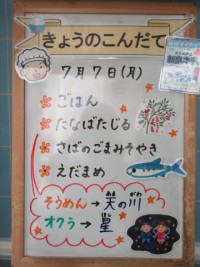 きょうのこんだて
7月7日(月)
ごはん
たなばたじる
さばのごまみそやき
えだまめ
そうめん→天の川
オクラ→星